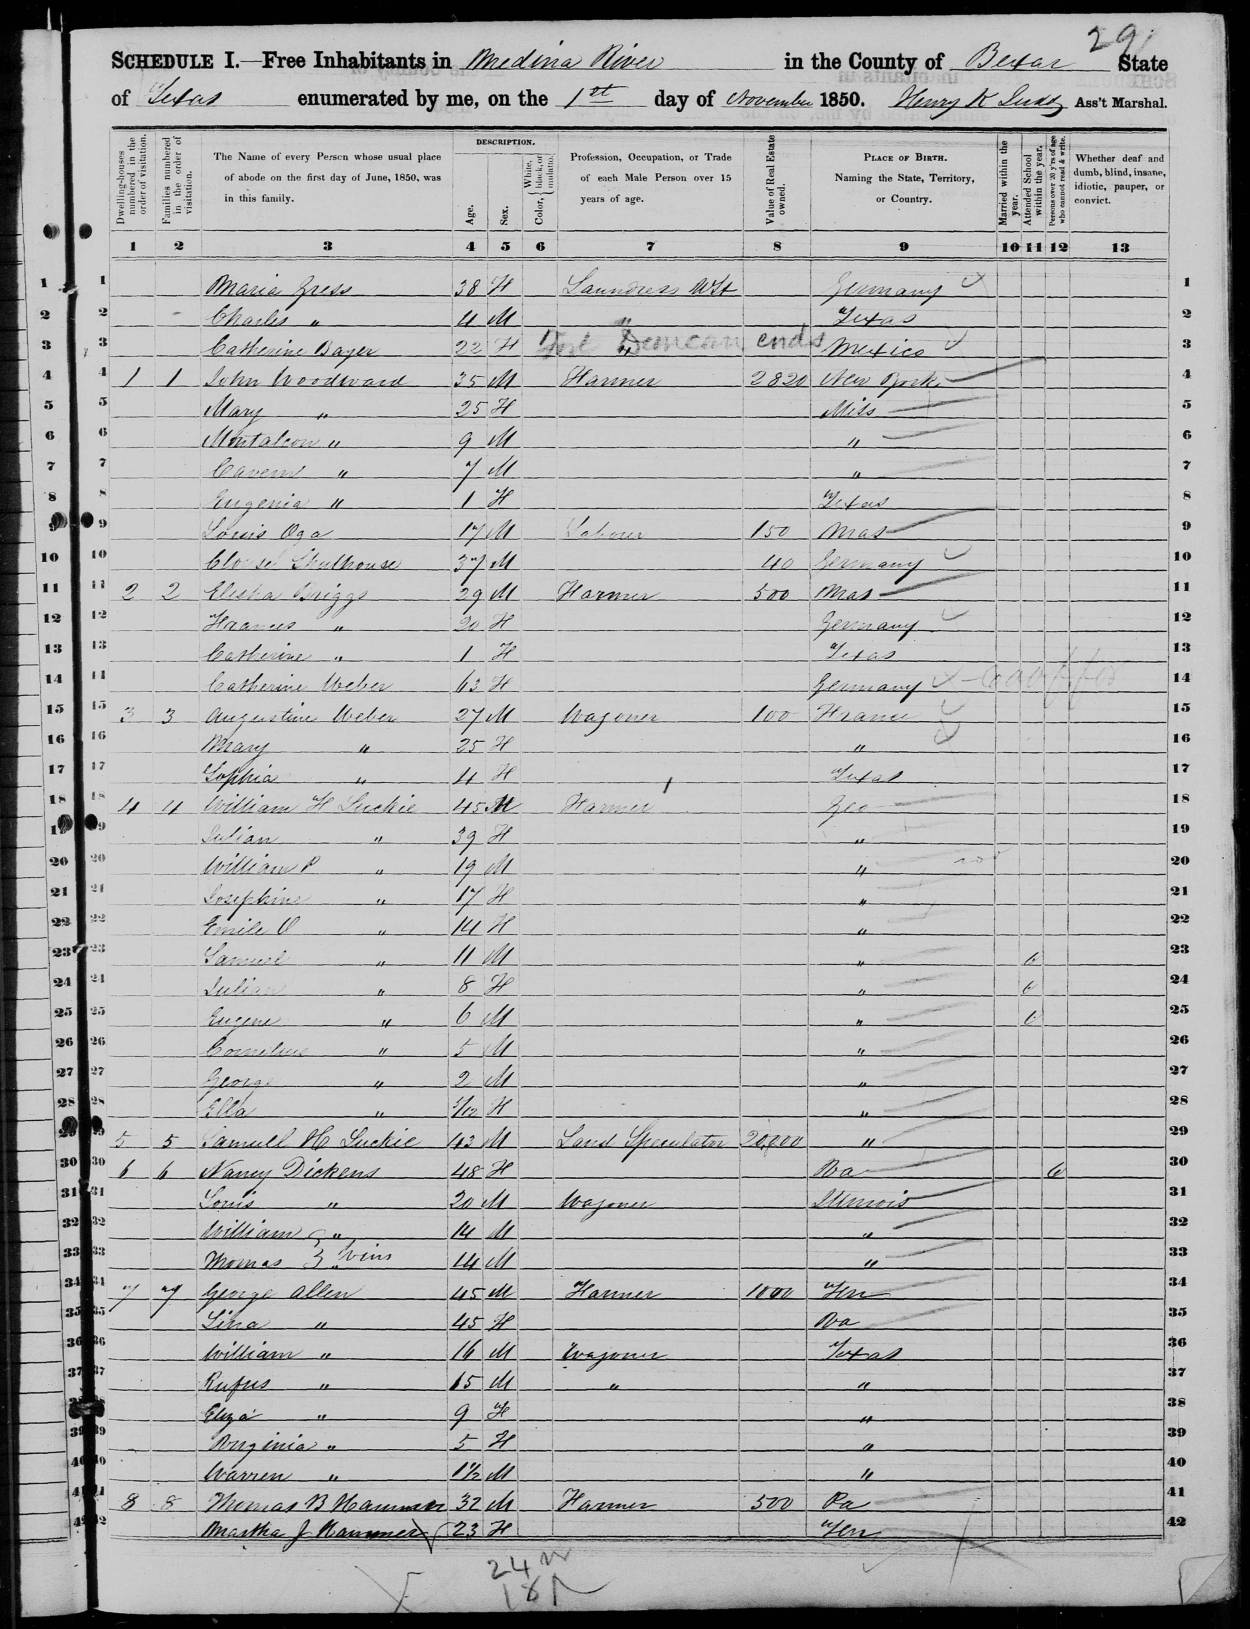 29
SCHEDULE I.—Free Inhabitants in Medina River in the County of Bexar State
of Texas enumerated by me, on the 1st day of November 1850. Henry K Judd Ass't Marshal.
Dwelling-houses numbered in the order of visitation.
Families numbered in the order of visitation.
The Name of every Person whose usual place of abode on the first day of June, 1850, was in this family.
DESCRIPTION.
Age.
Sex.
Color, White, black, or mulatto.
Profession, Occupation, or Trade of each Male Person over 15 years of age.
Value of Real Estate owned.
PLACE OF BIRTH. Naming the State, Territory, or Country.
Married within the year.
Attended School within the year.
Persons over 20 y'rs of age who cannot read & write.
Whether deaf and dumb, blind, insane, idiotic, pauper, or convict.
1 2 3 4 5 6 7 8 9 10 11 12 13
1 Maria Gress 38 F Laundress Germany 1
2 Charles " 4 M " Texas 2
3 Catherine Bayer 22 F " Mexico 3
Fort Duncan ends
4 1 1 John Woodward 35 M Farmer 2820 New York 4
5 Mary " 25 F Miss 5
6 " 9 M " 6
7 " 7 M " 7
8 Eugenia " 1 F Texas 8
9 Louis Oga 17 M Labour 150 Mas 9
10 37 M 40 Germany 10
11 2 2 Elisha Briggs 29 M Farmer 500 Mas 11
12 Frances " 20 F Germany 12
13 Catherine " 1 F Texas 13
14 Catherine Weber 63 F Germany 14
15 3 3 Augustine Weber 27 M Wagoner 100 France 15
16 Mary " 25 F " 16
17 Sophia " 4 F Texas 17
18 4 4 William H Luckie 45 M Farmer Geo 18
19 Julian " 39 F " 19
20 William P " 19 M " 20
21 Josephine " 17 F " 21
22 Emile O " 14 F " 22
23 Samuel " 11 M " 23
24 Julian " 8 F " 24
25 Eugene " 6 M " 25
26 Cornelius " 5 M " 26
27 George " 2 M " 27
28 Ella " /12 F " 28
29 5 5 Samuell H Luckie 43 M Land Speculator 20,000 " 29
30 6 6 Nancy Dickens 48 F Va 30
31 Louis " 20 M Wagoner Illinois 31
32 William " 14 M " 32
33 Thomas " twins 14 M " 33
34 7 7 George Allen 45 M Farmer 1000 Ten 34
35 " 45 F Va 35
36 William " 16 M Wagoner Texas 36
37 Rufus " 15 M " " 37
38 Eliza " 9 F " 38
39 Virginia " 5 F " 39
40 Warren " 1½ M " 40
41 8 8 Thomas B Hammer 32 M Farmer 500 Pa 41
42 Martha J Hammer 23 F Ten 42
24 m
18